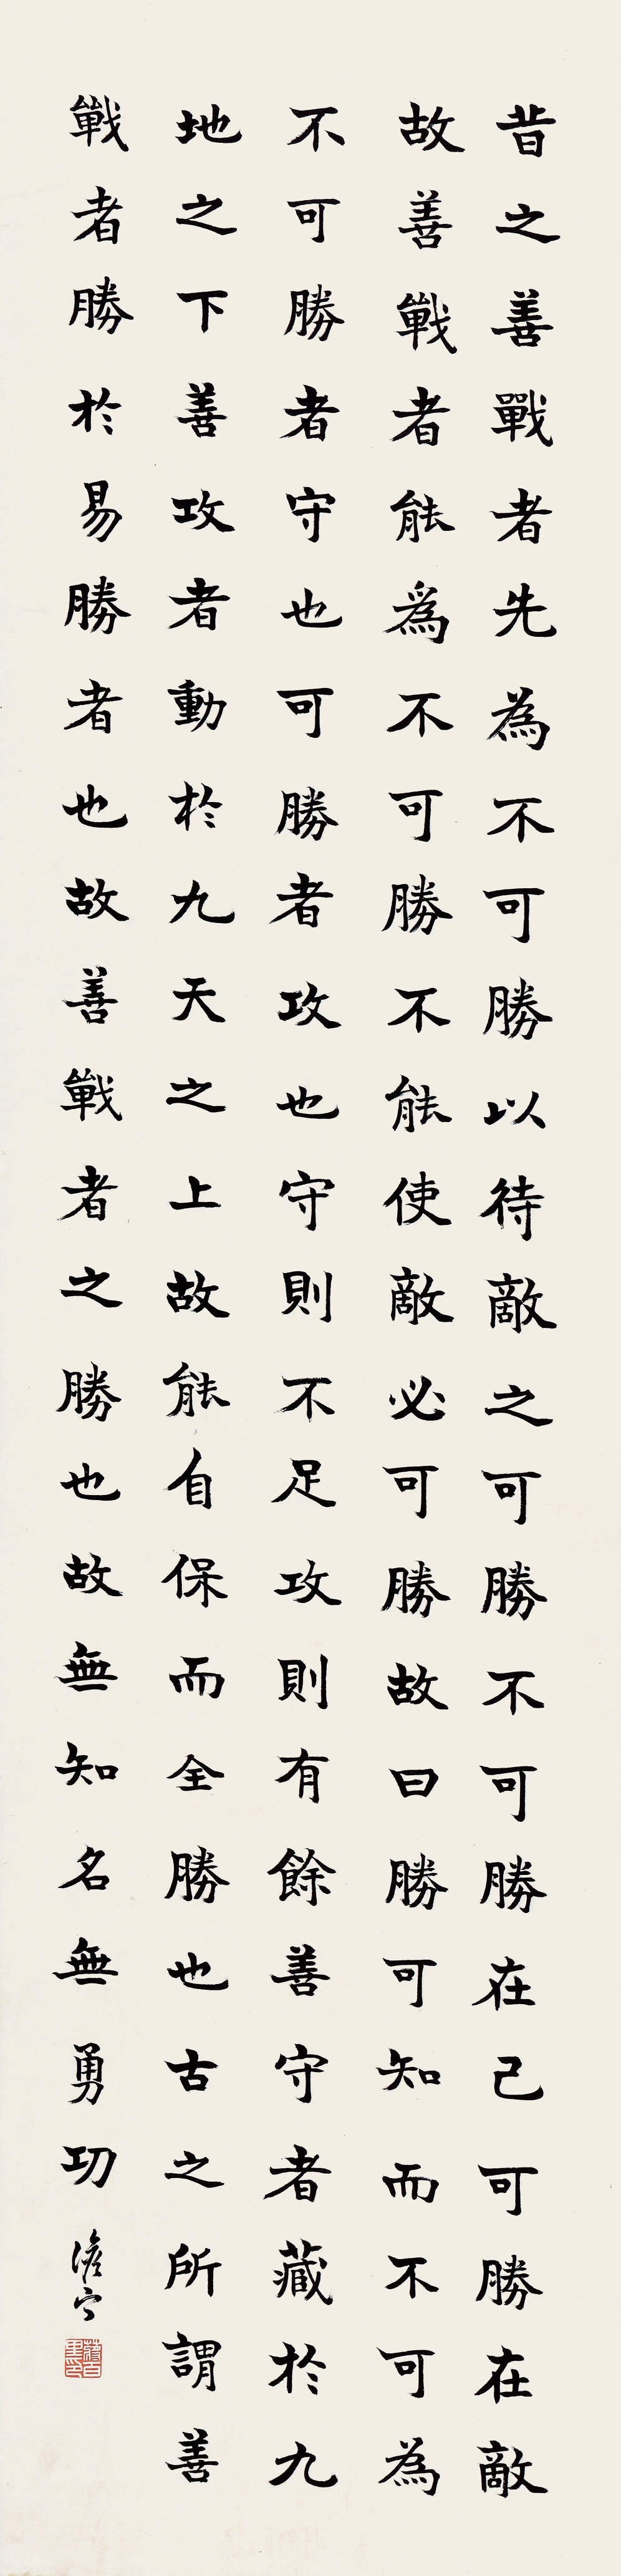 昔之善戰者先為不可勝以待敵之可勝不可勝在己可勝在敵
故善戰者能為不可勝不能使敵必可勝故曰勝可知而不可為
不可勝者守也可勝者攻也守則不足攻則有餘善守者藏於九
地之下善攻者動於九天之上故能自保而全勝也古之所謂善
戰者勝於易勝者也故善戰者之勝也故無知名無勇功